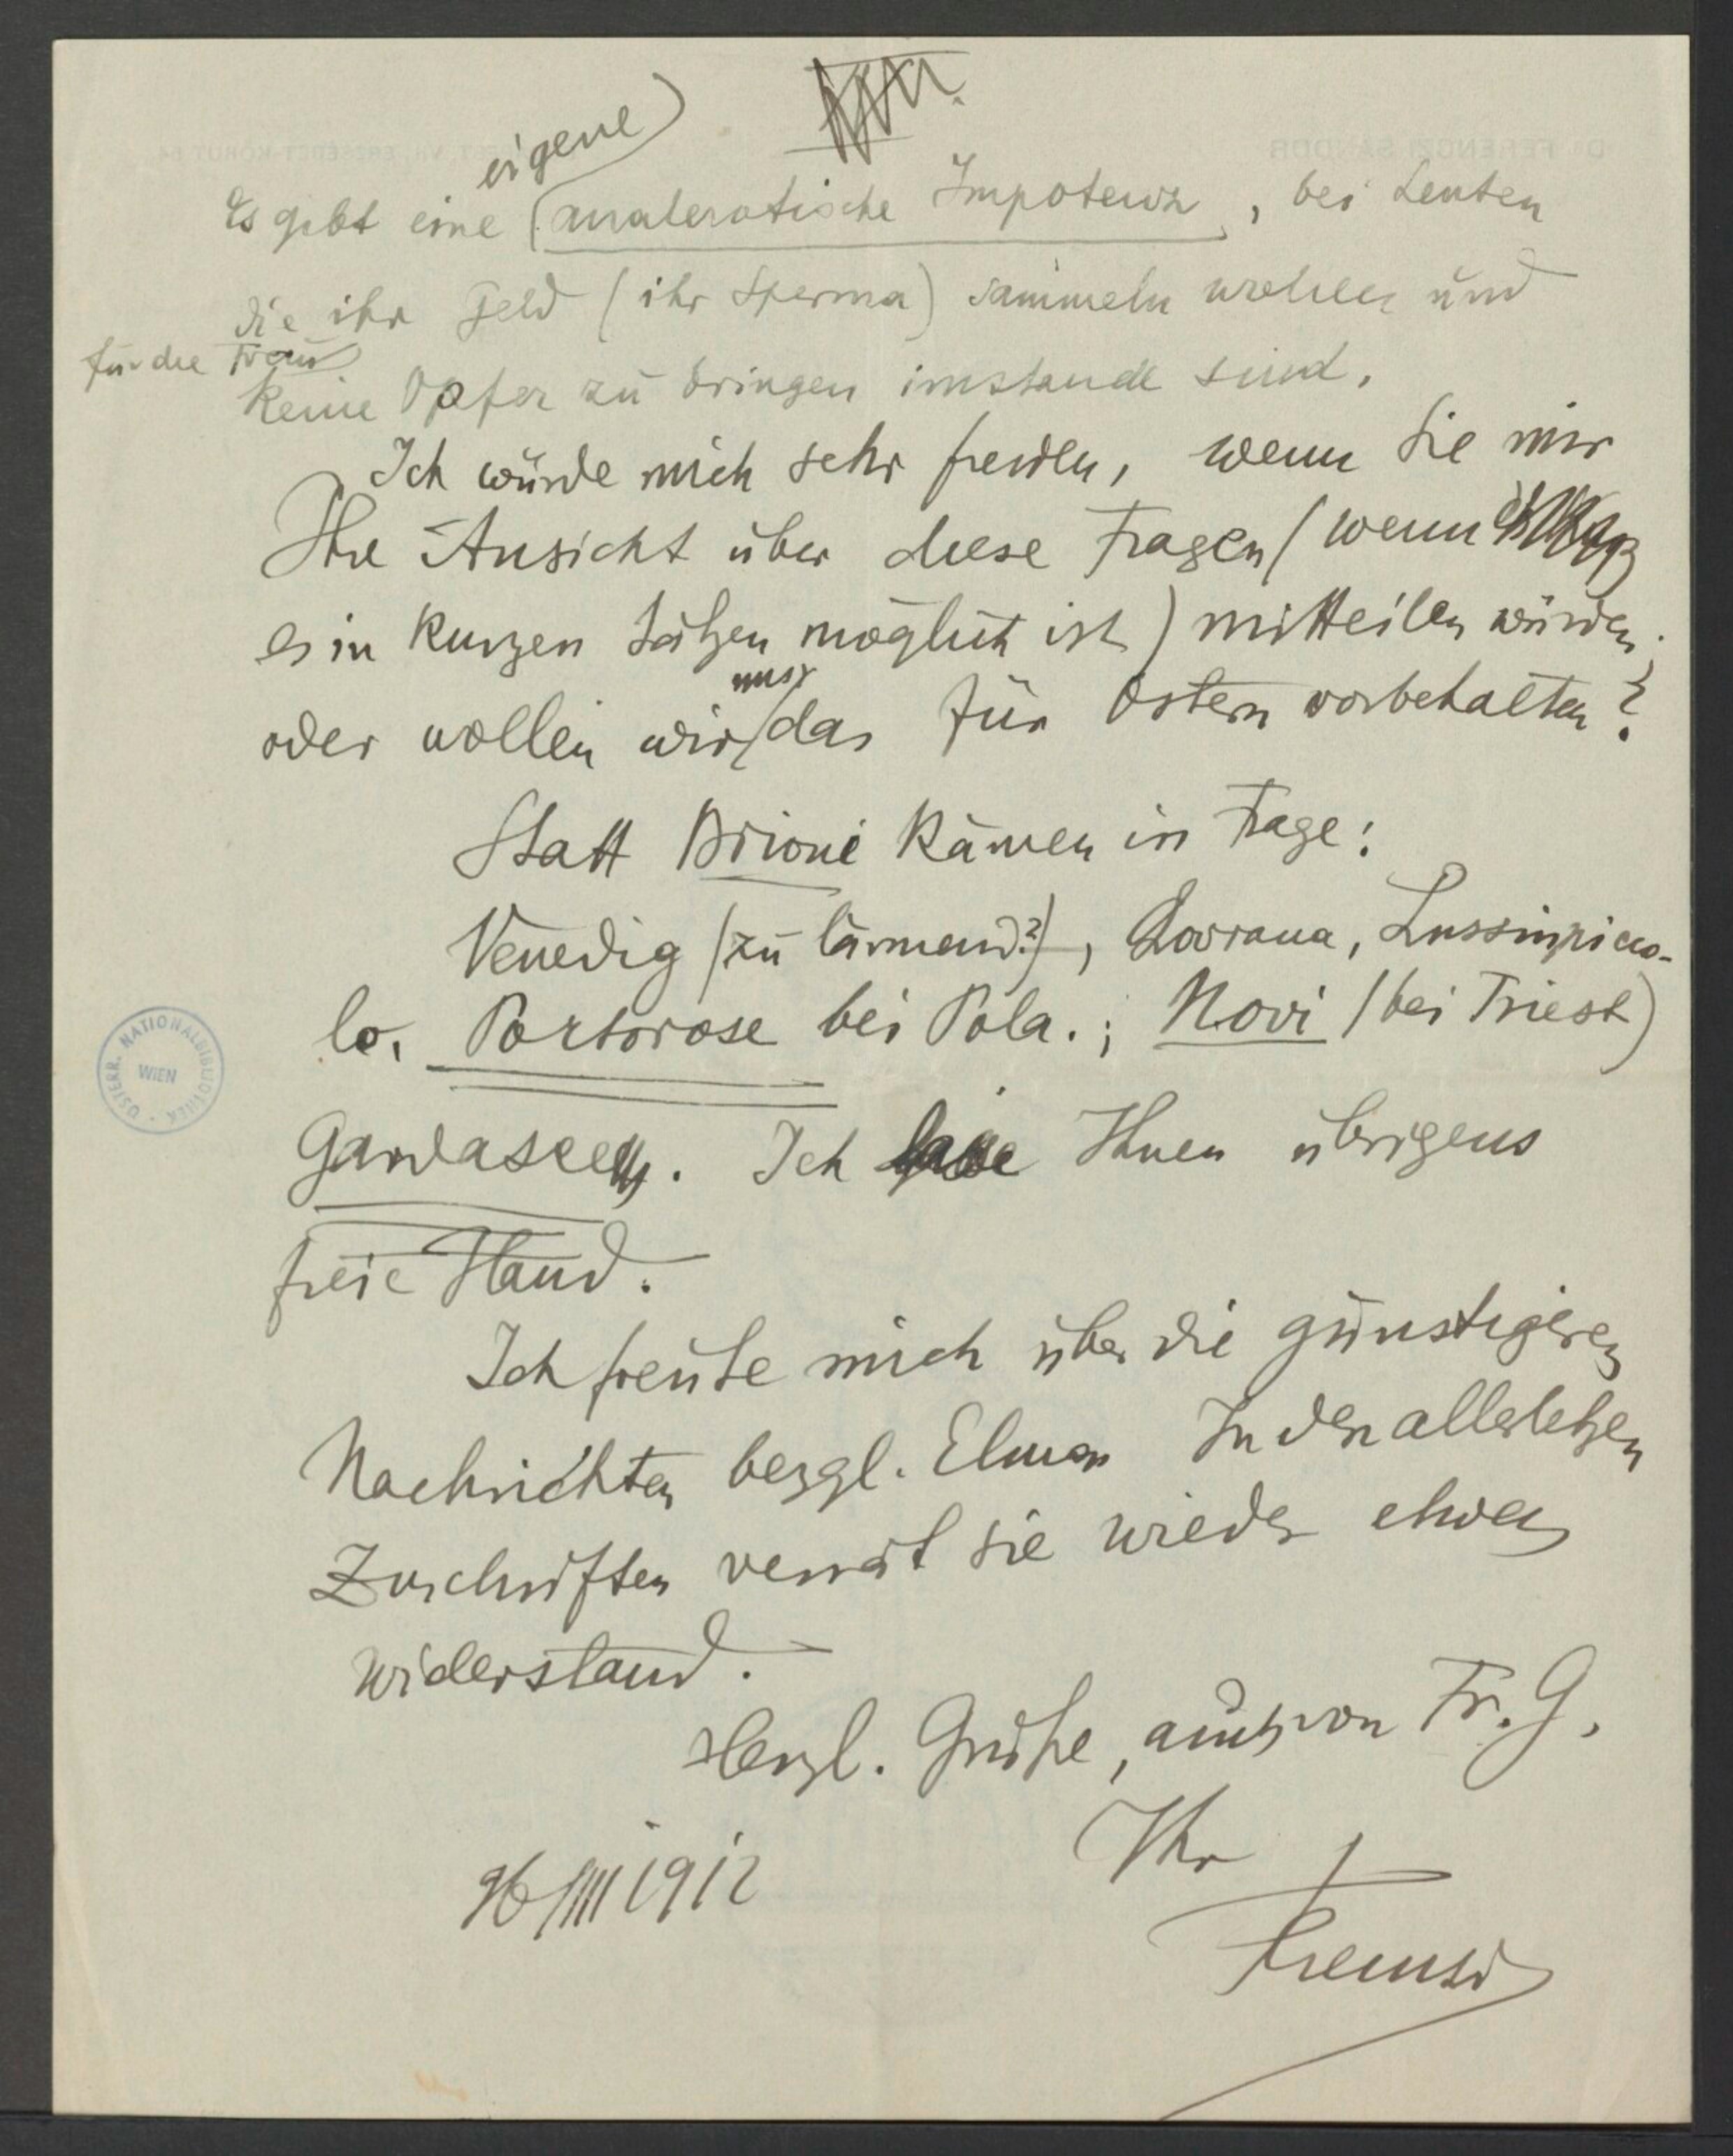 Es gibt eine eigene analerotische Impotenz, bei Leuten
die ihr Geld (ihr Sperma) sammeln wollen und
für die Frau
keine Opfer zu bringen imstande sind.
Ich würde mich sehr freuen, wenn Sie mir
Ihre Ansicht über diese Fragen (wenn
es in kurzen Sätzen möglich ist) mitteilen würden;
oder wollen wir uns das für Ostern vorbehalten?
Statt Brioni kämen in Frage:
Venedig (zu lärmend?), Lovrana, Lussinpicco-
lo. Portorose bei Pola.; Novi (bei Triest)
Gardasee. Ich lasse Ihnen übrigens
freie Hand.
Ich freute mich über die günstigeren
Nachrichten bezgl. Elma. In den allerletzten
Zuschriften verrät sie wieder etwas
Widerstand.
Herzl. Grüße, auch von Fr. G.
Ihr
26/III 1912
Ferenczi
ÖSTERR. NATIONALBIBLIOTHEK
WIEN
Dr FERENCZI SÁNDOR
VII., ERZSÉBET-KÖRUT 54